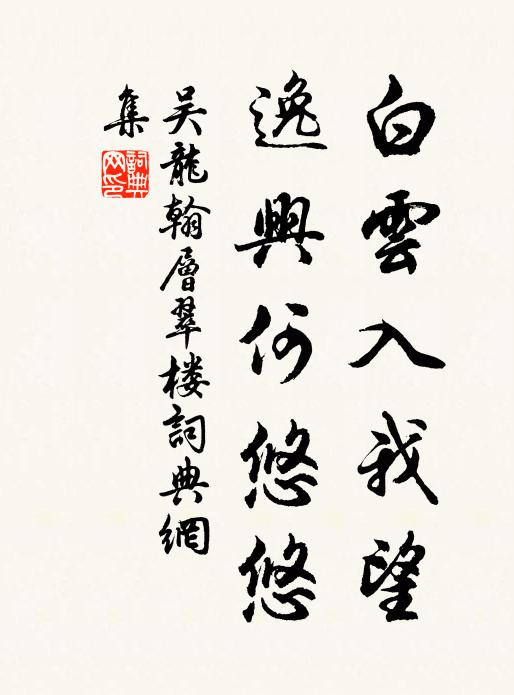 白雲入我望
逸興何悠悠
吳龍翰層翠楼詞典網
集
詞典
网印